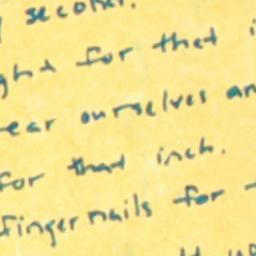 second.
ght for that i
ear ourselves an
for that inch.
fingernails for